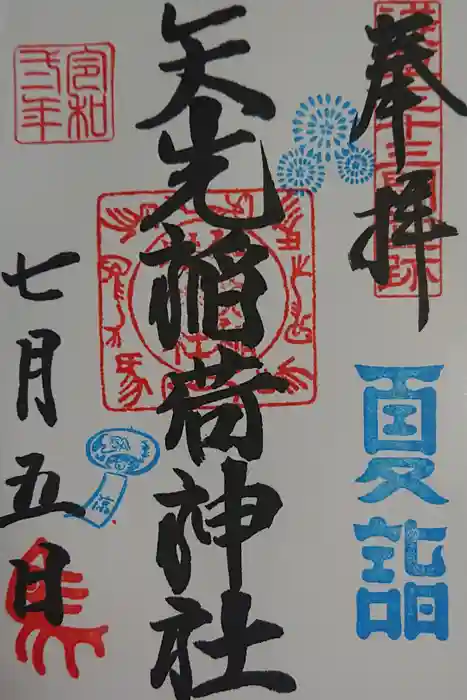 奉拝
夏詣
矢先稲荷神社
令和
弐年
七月五日
涼